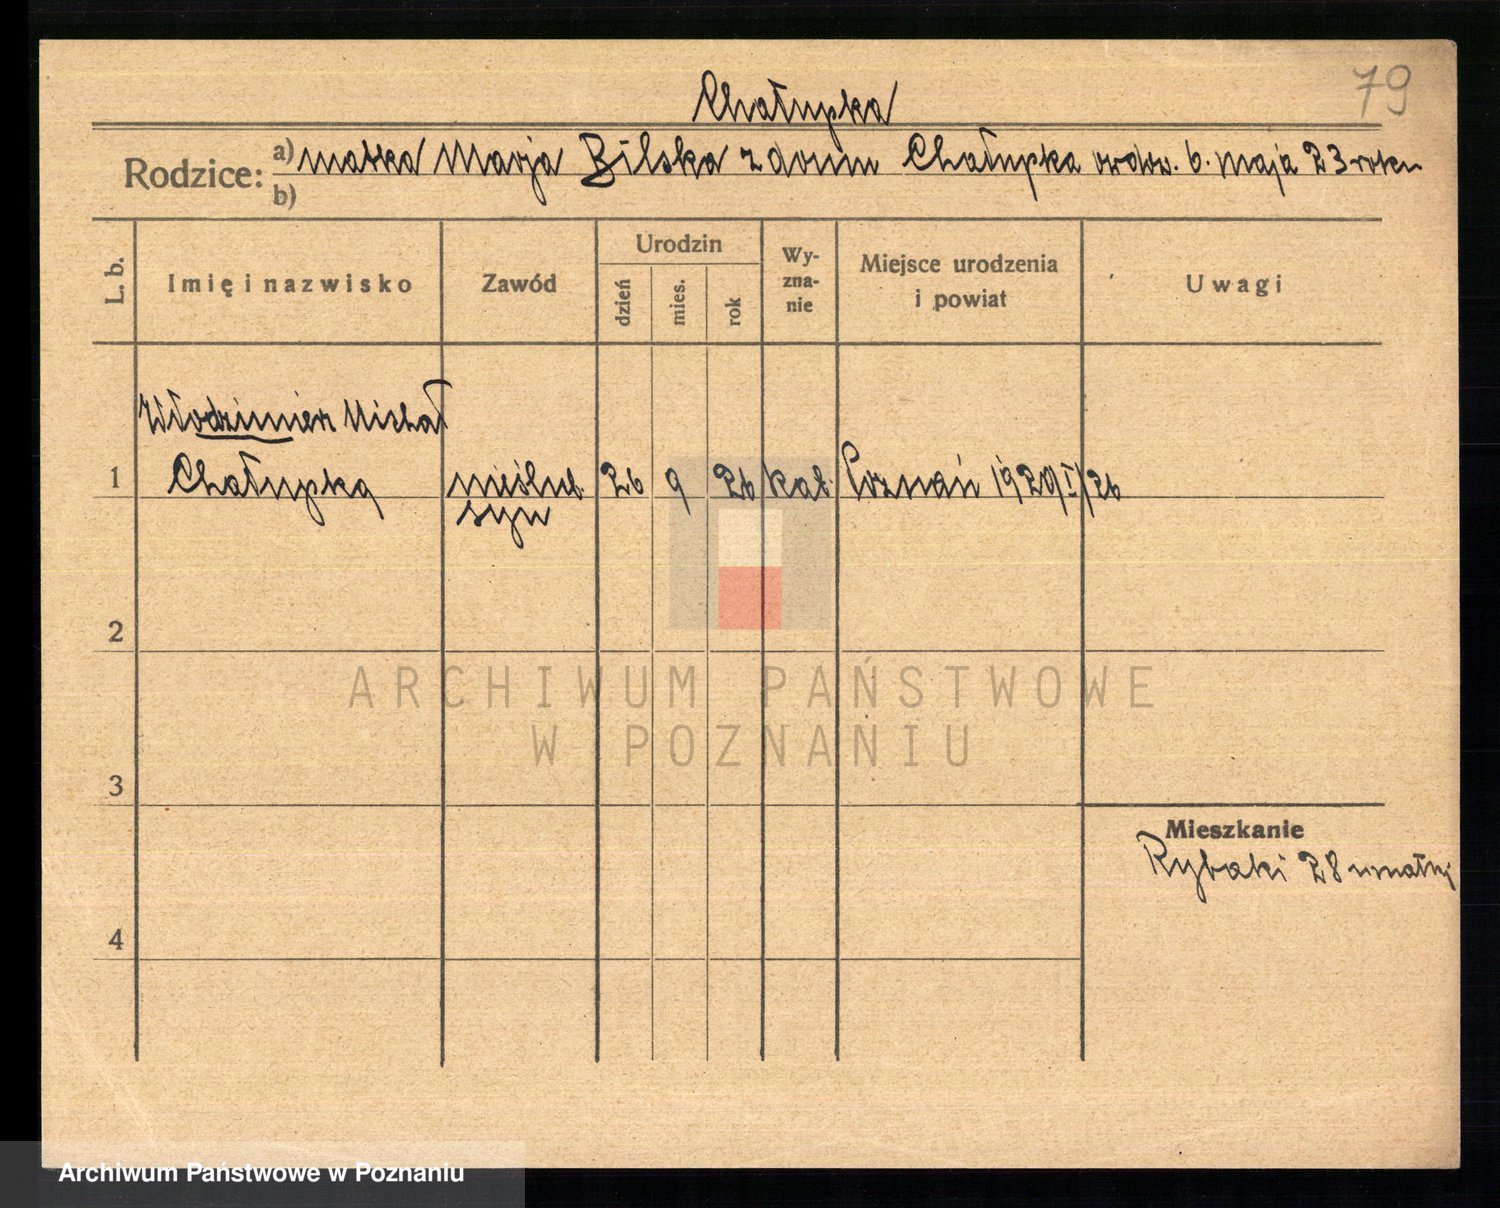 79
Chałupka
Rodzice: a) matka Marja Bilska z domu Chałupka owdow. 6. maja 23 roku
b)
L. b. Imię i nazwisko Zawód Urodzin dzień mies. rok Wy-zna-nie Miejsce urodzenia i powiat Uwagi
Włodzimierz Michał
1 Chałupka nieślub. 26 9 26 kat. Poznań 1929/I/26
syn
2
3
Mieszkanie
Rybaki 28 u matki
4
ARCHIWUM PAŃSTWOWE
W POZNANIU
Archiwum Państwowe w Poznaniu